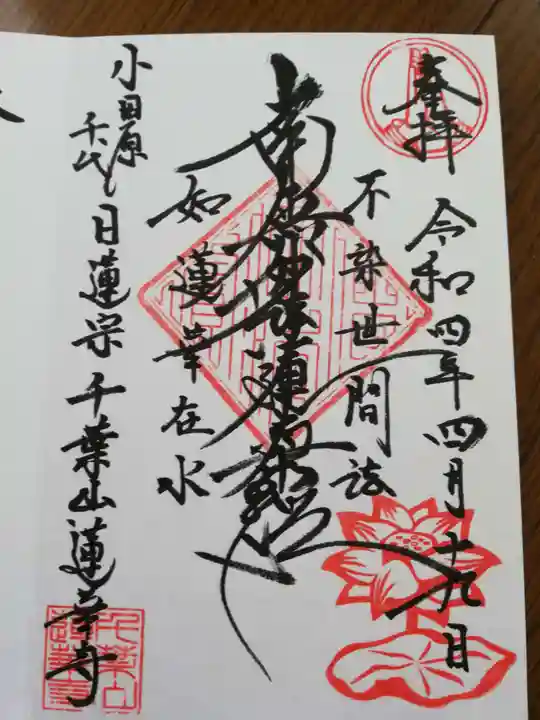 奉拝
令和四年四月十九日
不染世間法
南無妙法蓮華経
如蓮華在水
小田原
千代
日蓮宗千葉山蓮華寺
千葉山
蓮華寺